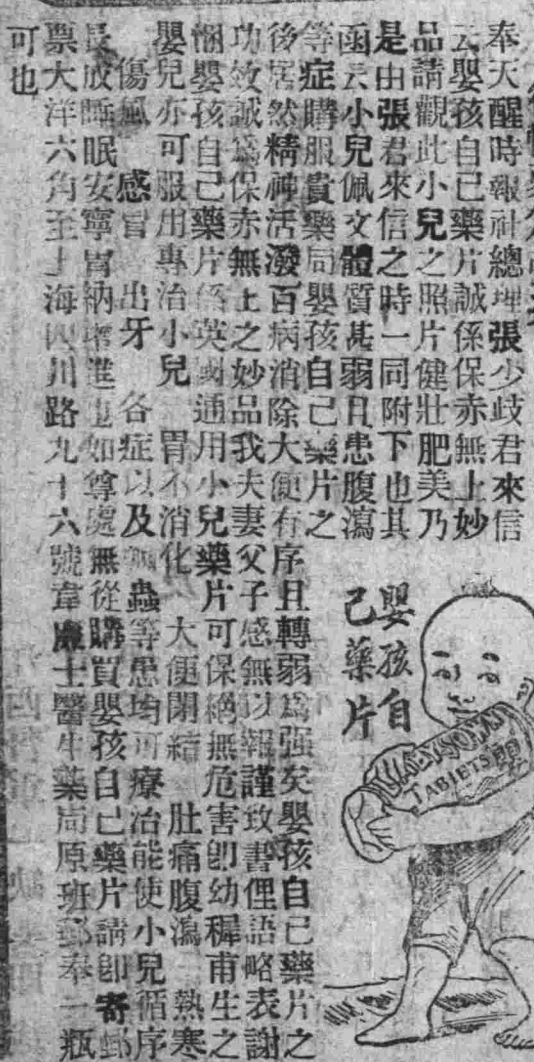 奉天醒時報社總理張少歧君來信
云嬰孩自己藥片誠係保赤無上妙
品請觀此小兒之照片健壯肥美乃
是由張君來信之時一同附下也其
函云小兒佩文體質甚弱且患腹瀉
等症購服貴藥局嬰孩自己藥片之
後居然精神活潑百病消除大便有序且轉弱爲强矣嬰孩自己藥片之
功效誠爲保赤無上之妙品我夫妻父子感無以報謹致書俚語略表謝
悃嬰孩自己藥片係英國通用小兒藥片可保絕無危害卽幼穉甫生之
嬰兒亦可服用專治小兒 胃不消化 大便閉結 肚痛腹瀉 熱寒
傷風 感冒 出牙 各症以及 蟲等患均可療治能使小兒循序
長成睡眠安寧胃納增進也如尊處無從購買嬰孩自己藥片請卽寄郵
票大洋六角至上海四川路九十六號韋廉士醫生藥局原班郵奉一瓶
可也
嬰孩自
己藥片
TABLETS